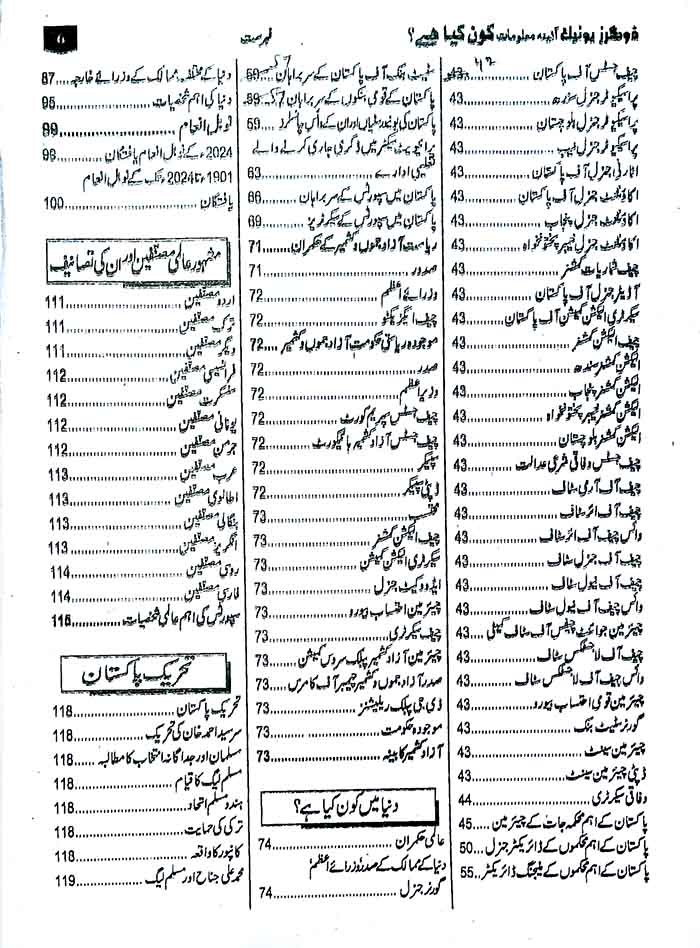 ڈوگرز یونیک آئینہ معلومات کون کیا ہے؟
فہرست
6
چیف جسٹس آف پاکستان ..... 43
پراسیکیوٹر جنرل سندھ ..... 43
پراسیکیوٹر جنرل بلوچستان ..... 43
پراسیکیوٹر جنرل نیب ..... 43
اٹارنی جنرل آف پاکستان ..... 43
اکاؤنٹنٹ جنرل آف پاکستان ..... 43
اکاؤنٹنٹ جنرل پنجاب ..... 43
اکاؤنٹنٹ جنرل خیبر پختونخواہ ..... 43
چیف شماریات کمشنر ..... 43
آڈیٹر جنرل آف پاکستان ..... 43
سیکرٹری الیکشن کمیشن آف پاکستان ..... 43
چیف الیکشن کمشنر ..... 43
الیکشن کمشنر سندھ ..... 43
الیکشن کمشنر پنجاب ..... 43
الیکشن کمشنر خیبر پختونخواہ ..... 43
الیکشن کمشنر بلوچستان ..... 43
چیف جسٹس وفاقی شرعی عدالت ..... 43
چیف آف آرمی سٹاف ..... 43
چیف آف ائر سٹاف ..... 43
وائس چیف آف ائر سٹاف ..... 43
چیف آف جنرل سٹاف ..... 43
چیف آف نیول سٹاف ..... 43
وائس چیف آف نیول سٹاف ..... 43
چیئرمین جوائنٹ چیفس آف سٹاف کمیٹی ..... 43
چیف آف لاجسٹکس سٹاف ..... 43
وائس چیف آف لاجسٹکس سٹاف ..... 43
چیئرمین قومی احتساب بیورو ..... 43
گورنر سٹیٹ بنک ..... 43
چیئرمین سینٹ ..... 43
ڈپٹی چیئرمین سینٹ ..... 43
وفاقی سیکرٹری ..... 44
پاکستان کے اہم محکمہ جات کے چیئرمین ..... 45
پاکستان کے اہم محکموں کے ڈائریکٹر جنرل ..... 50
پاکستان کے اہم محکموں کے مینجنگ ڈائریکٹر ..... 55
سٹیٹ بنک آف پاکستان کے سربراہان ..... 59
پاکستان کے قومی بنکوں کے سربراہان ..... 59
پاکستان کی یونیورسٹیاں اور ان کے وائس چانسلرز ..... 59
پرائیویٹ سیکٹر میں ڈگری جاری کرنے والے
تعلیمی ادارے ..... 63
پاکستان میں سپورٹس کے سربراہان ..... 66
پاکستان میں سپورٹس کے سیکرٹریز ..... 69
ریاست آزاد جموں و کشمیر کے حکمران ..... 71
صدور ..... 71
وزرائے اعظم ..... 72
چیف ایگزیکٹو ..... 72
موجودہ ریاستی حکومت آزاد جموں و کشمیر ..... 72
صدر ..... 72
وزیراعظم ..... 72
چیف جسٹس سپریم کورٹ ..... 72
چیف جسٹس آزاد کشمیر ہائیکورٹ ..... 72
سپیکر ..... 72
ڈپٹی سپیکر ..... 72
محتسب ..... 73
چیف الیکشن کمشنر ..... 73
سیکرٹری الیکشن کمیشن ..... 73
ایڈووکیٹ جنرل ..... 73
چیئرمین احتساب بیورو ..... 73
چیف سیکرٹری ..... 73
چیئرمین آزاد کشمیر پبلک سروس کمیشن ..... 73
صدر آزاد جموں و کشمیر چیمبر آف کامرس ..... 73
ڈی جی پبلک ریلیشنز ..... 73
موجودہ حکومت ..... 73
آزاد کشمیر کابینہ ..... 73
دنیا میں کون کیا ہے؟
عالمی حکمران ..... 74
دنیا کے ممالک کے صدور/وزرائے اعظم/
گورنر جنرل ..... 74
دنیا کے مختلف ممالک کے وزرائے خارجہ ..... 87
دنیا کی اہم شخصیات ..... 95
نوبل انعام ..... 99
2024ء کے نوبل انعام یافتگان ..... 98
1901ء تا 2024ء تک کے نوبل انعام
یافتگان ..... 100
مشہور عالمی مصنفین اور ان کی تصانیف
اردو مصنفین ..... 111
ترک مصنفین ..... 111
دیگر مصنفین ..... 111
فرانسیسی مصنفین ..... 112
سنسکرت مصنفین ..... 112
یونانی مصنفین ..... 112
جرمن مصنفین ..... 112
عرب مصنفین ..... 113
اطالوی مصنفین ..... 113
بنگالی مصنفین ..... 113
انگریز مصنفین ..... 113
روسی مصنفین ..... 114
فارسی مصنفین ..... 114
سپورٹس کی اہم عالمی شخصیات ..... 115
تحریک پاکستان
تحریک پاکستان ..... 118
سرسید احمد خان کی تحریک ..... 118
مسلمان اور جداگانہ انتخاب کا مطالبہ ..... 118
مسلم لیگ کا قیام ..... 118
ہندو مسلم اتحاد ..... 118
ترکی کی حمایت ..... 118
کانپور کا واقعہ ..... 118
محمد علی جناح اور مسلم لیگ ..... 119